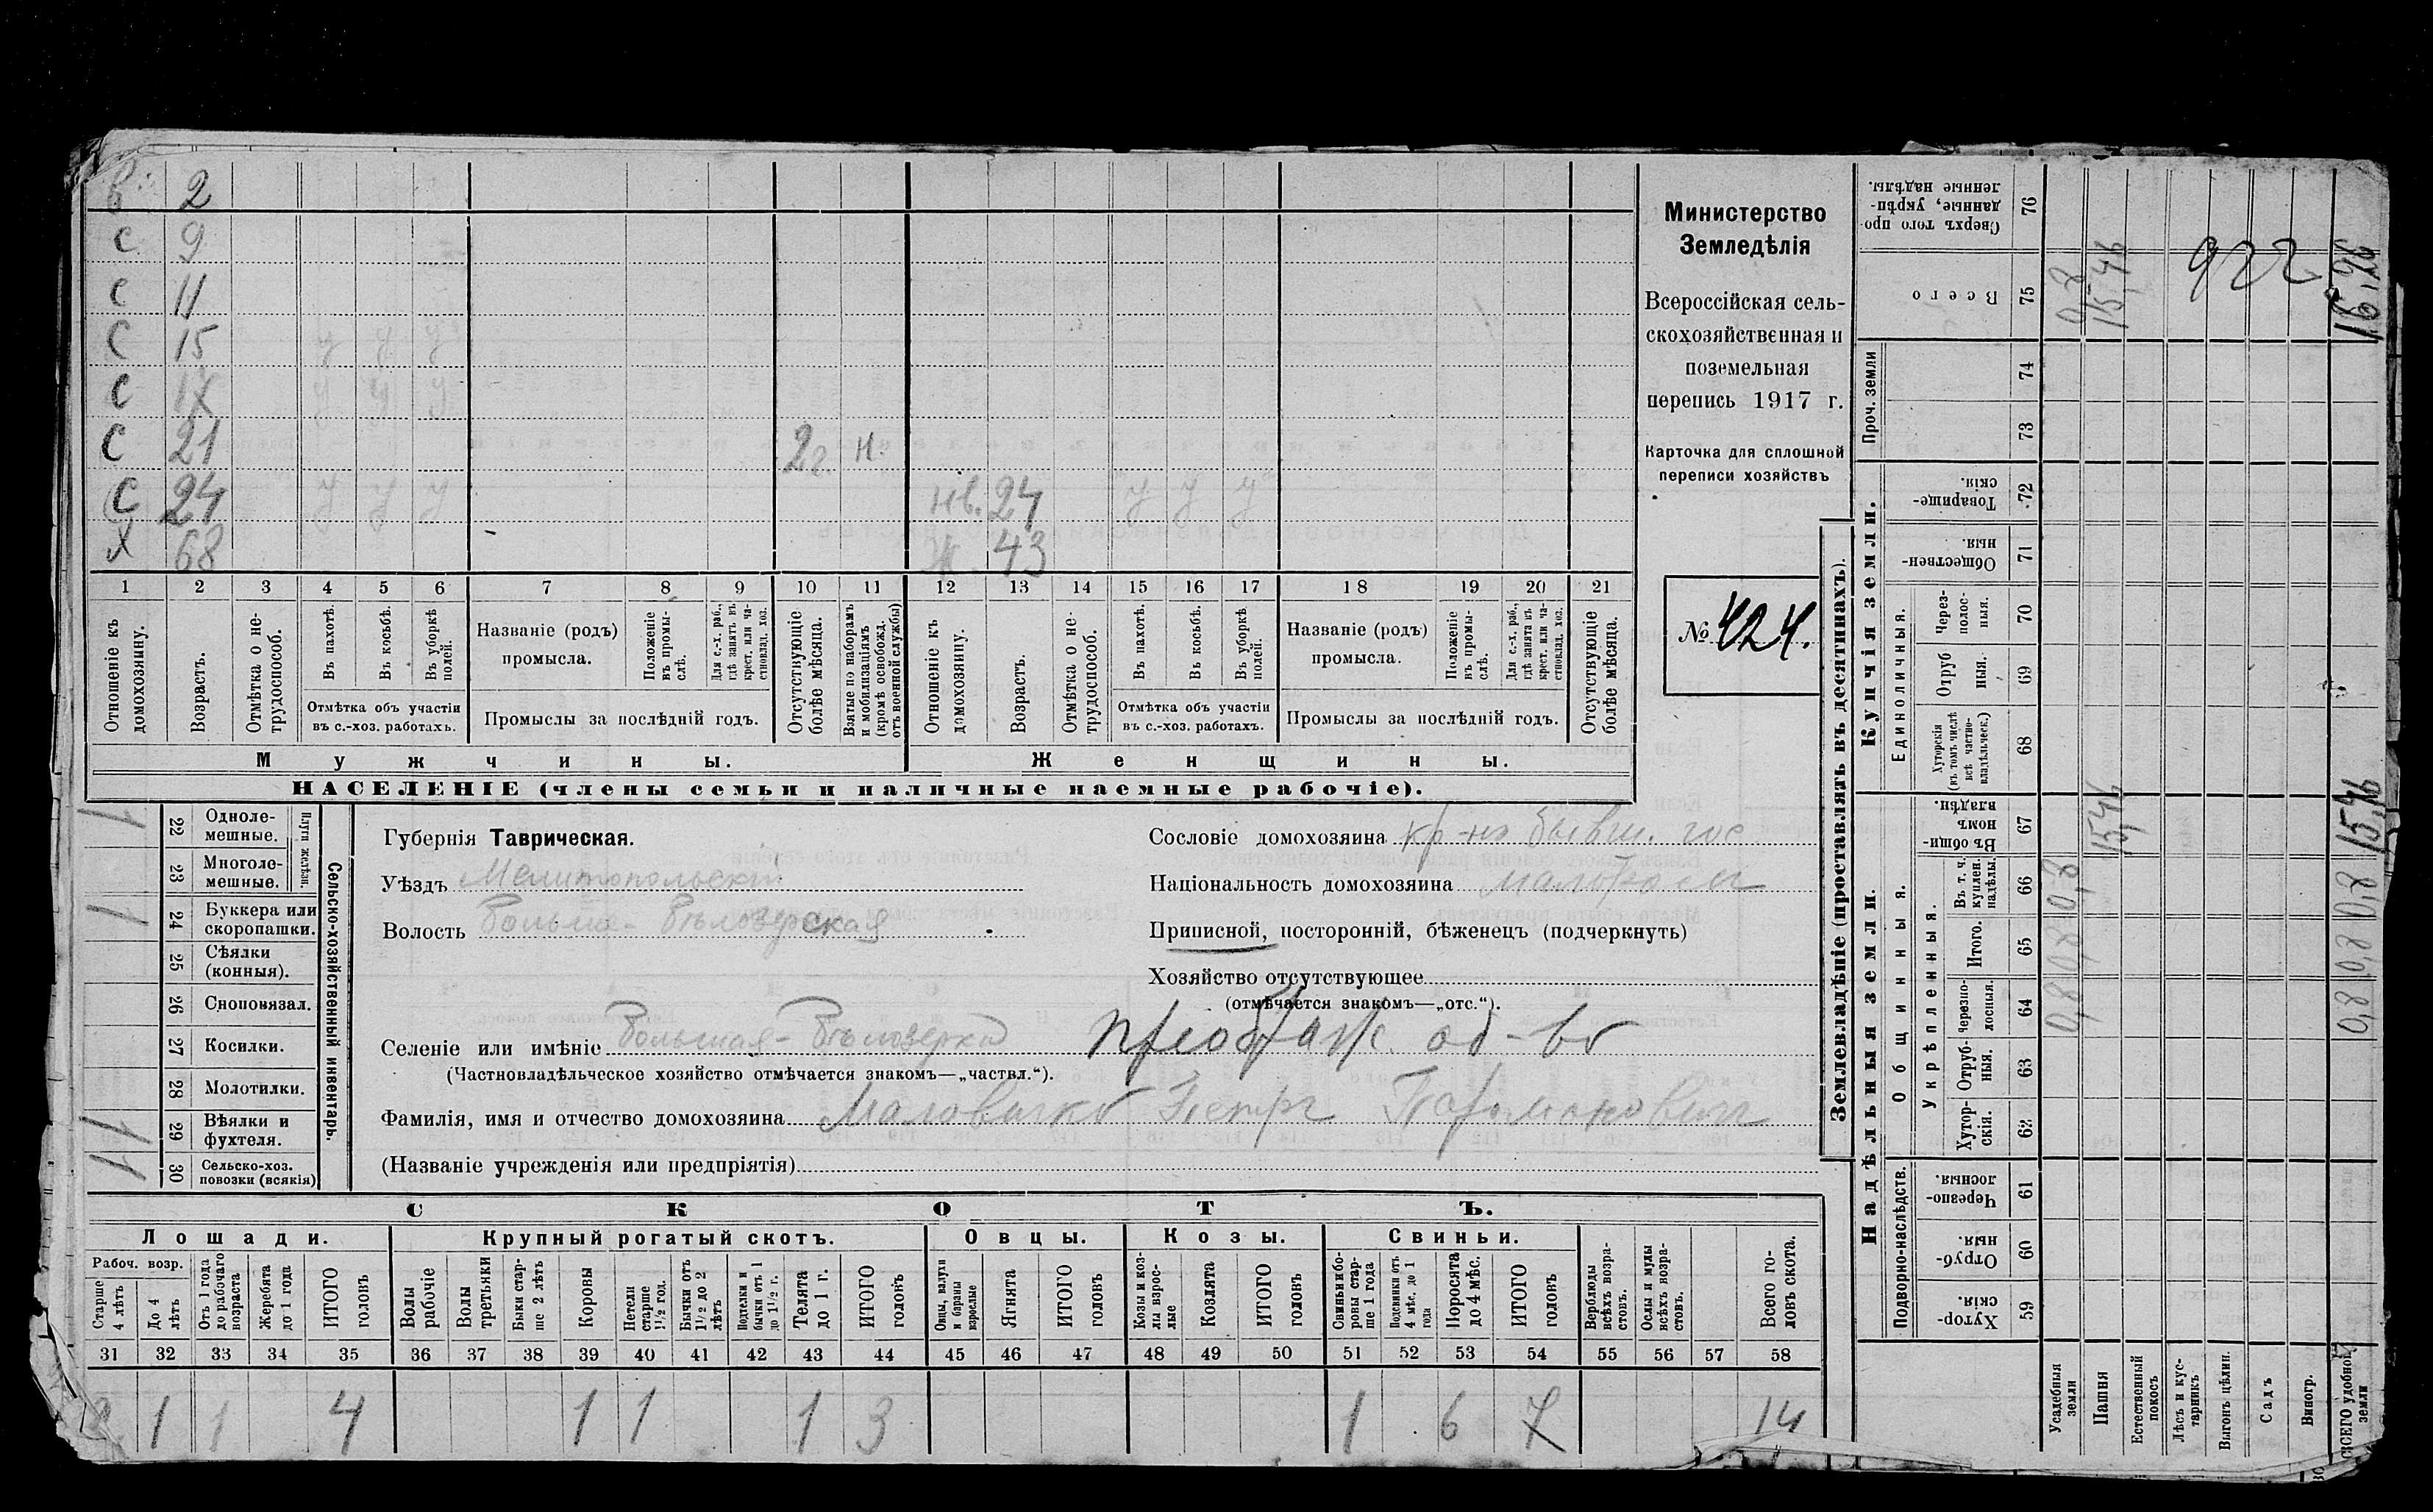 в 2
с 9
с 11
с 15 у у у
с 17 у у у
с 21 2 г. н.
с 24 у у у нв. 24 у у у
х 68 ж. 43
1 2 3 4 5 6 7 8 9 10 11 12 13 14 15 16 17 18 19 20 21
Отношеніе къ домохозяину.
Возрастъ.
Отмѣтка о нетрудоспособ.
Въ пахотѣ.
Въ косьбѣ.
Въ уборкѣ полей.
Отмѣтка объ участіи
въ с.-хоз. работахъ.
Названіе (родъ)
промысла.
Положеніе въ промыслѣ.
Для с.-х. раб., гдѣ занятъ въ крест. или частновлад. хоз.
Промыслы за послѣдній годъ.
Отсутствующіе болѣе мѣсяца.
Взятые по наборамъ и мобилизаціямъ (кромѣ освобожд. отъ военной службы)
Отношеніе къ домохозяину.
Возрастъ.
Отмѣтка о нетрудоспособ.
Въ пахотѣ.
Въ косьбѣ.
Въ уборкѣ полей.
Отмѣтка объ участіи
въ с.-хоз. работахъ.
Названіе (родъ)
промысла.
Положеніе въ промыслѣ.
Для с.-х. раб., гдѣ занята въ крест. или частновлад. хоз.
Промыслы за послѣдній годъ.
Отсутствующіе болѣе мѣсяца.
Мужчины.
Женщины.
НАСЕЛЕНІЕ (члены семьи и наличные наемные рабочіе).
Министерство
Земледѣлія
Всероссійская сель-
скохозяйственная и
поземельная
перепись 1917 г.
Карточка для сплошной
переписи хозяйствъ
№ 424.
Сельско-хозяйственный инвентарь.
Плуги желѣзн.
1 22 Одноле-
мешные.
23 Многоле-
мешные.
1 24 Буккера или
скоропашки.
25 Сѣялки
(конныя).
26 Сноповязал.
27 Косилки.
28 Молотилки.
1 29 Вѣялки и
фухтеля.
1 30 Сельско-хоз.
повозки (всякія)
Губернія Таврическая.
Уѣздъ Мелитопольскій
Волость Больше-Бѣлозерская
Селеніе или имѣніе Большая-Бѣлозерка Преображ. об-во
(Частновладѣльческое хозяйство отмѣчается знакомъ—„частвл.“).
Фамилія, имя и отчество домохозяина Маловичко Петръ Парамоновичъ
(Названіе учрежденія или предпріятія)
Сословіе домохозяина кр-нъ бывш. гос
Національность домохозяина малоросъ
Приписной, посторонній, бѣженецъ (подчеркнуть)
Хозяйство отсутствующее
(отмѣчается знакомъ—„отс.“).
СКОТЪ.
Лошади. Крупный рогатый скотъ. Овцы. Козы. Свиньи.
Рабоч. возр.
Старше 4 лѣтъ
До 4 лѣтъ
Отъ 1 года до рабочаго возраста
Жеребята до 1 года
ИТОГО головъ
Волы рабочіе
Волы третьяки
Быки старше 2 лѣтъ
Коровы
Нетели старше 1½ год.
Бычки отъ 1½ до 2 лѣтъ
Подтелки и бычки отъ 1 до 1½ г.
Телята до 1 г.
ИТОГО головъ
Овцы, валухи и бараны взрослые
Ягнята
ИТОГО головъ
Козы и козлы взрослые
Козлята
ИТОГО головъ
Свиньи и боровы старше 1 года
Подсвинки отъ 4 мѣс. до 1 года
Поросята до 4 мѣс.
ИТОГО головъ
Верблюды всѣхъ возрастовъ.
Ослы и мулы всѣхъ возрастовъ.
Всего головъ скота.
31 32 33 34 35 36 37 38 39 40 41 42 43 44 45 46 47 48 49 50 51 52 53 54 55 56 57 58
2 1 1 4 1 1 1 3 1 6 7 14
Землевладѣніе (проставлять въ десятинахъ).
Купчія земли.
Надѣльныя земли.
Проч. земли
Единоличныя.
Общинныя.
Укрѣпленныя.
Подворно-наслѣдств.
Сверхъ того проданные, укрѣпленные надѣлы. 76
Всего 75 0,8 15,46 16,26
922
74
73
Товарищескія. 72
Общественныя. 71
Черезполосныя. 70
Отрубныя. 69
Хуторскія (въ томъ числѣ всѣ частновладѣльческ.) 68
Въ общинномъ владѣн. 67 15,46 15,46
Въ т. ч. куплен. надѣлы. 66 0,8 0,8
Итого. 65 0,8 0,8
Черезполосныя. 64 0,8 0,8
Отрубныя. 63
Хуторскія. 62
Черезполосныя. 61
Отрубныя. 60
Хуторскія. 59
Усадебныя земли
Пашня
Естественный покосъ
Лѣсъ и кустарникъ
Выгонъ цѣлин.
Садъ
Виногр.
ВСЕГО удобной земли